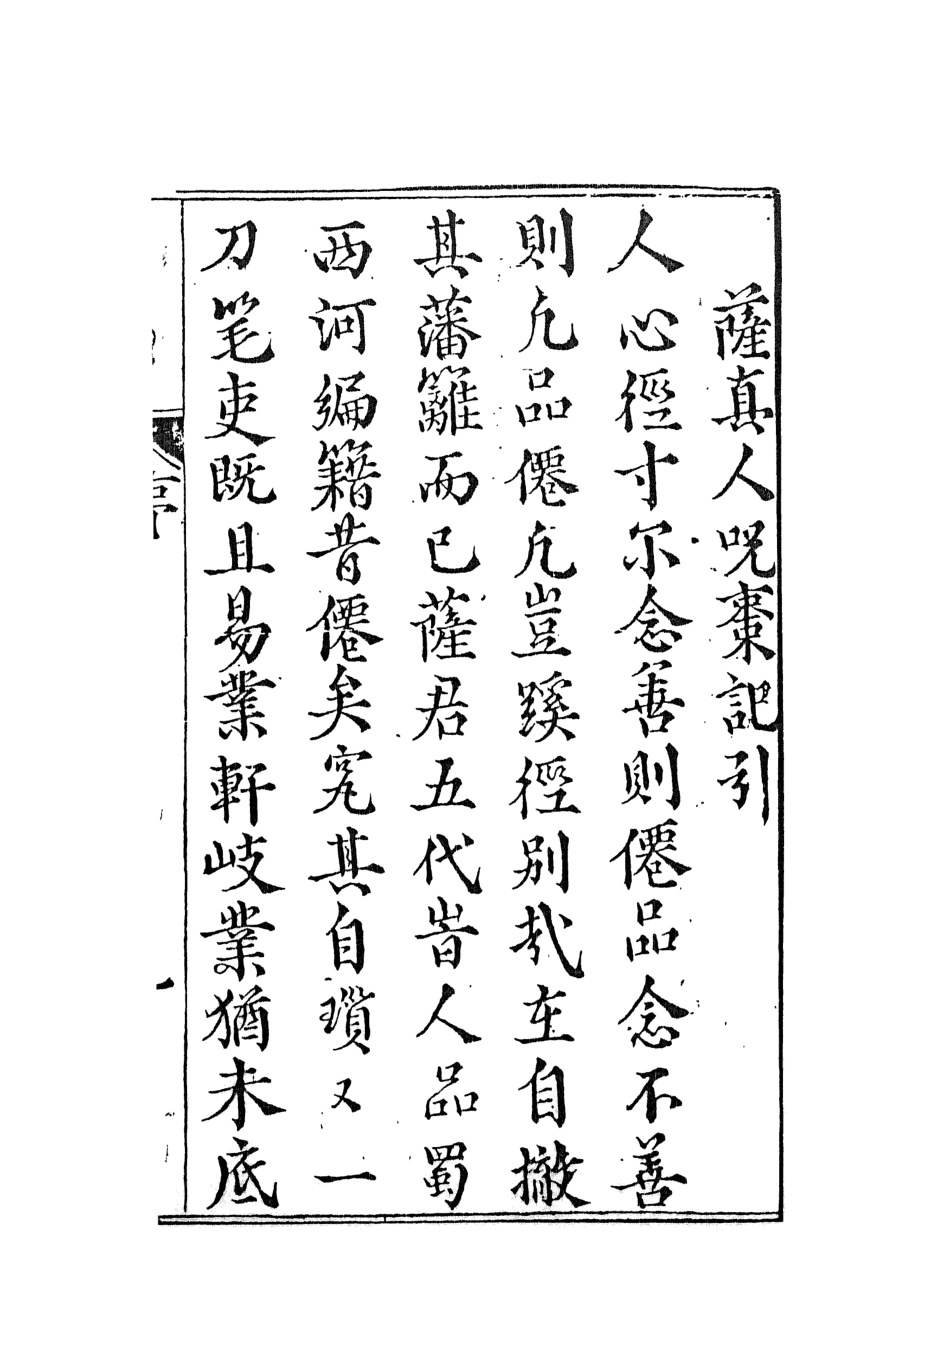 薩真人呪棗記引
人心徑寸尔念善則僊品念不善
則凢品僊凢豈蹊徑別哉在自撤
其藩籬而已薩君五代旹人品蜀
西河編籍昔僊矣究其自瓆又一
刀笔吏既且易業軒岐業猶未底
序